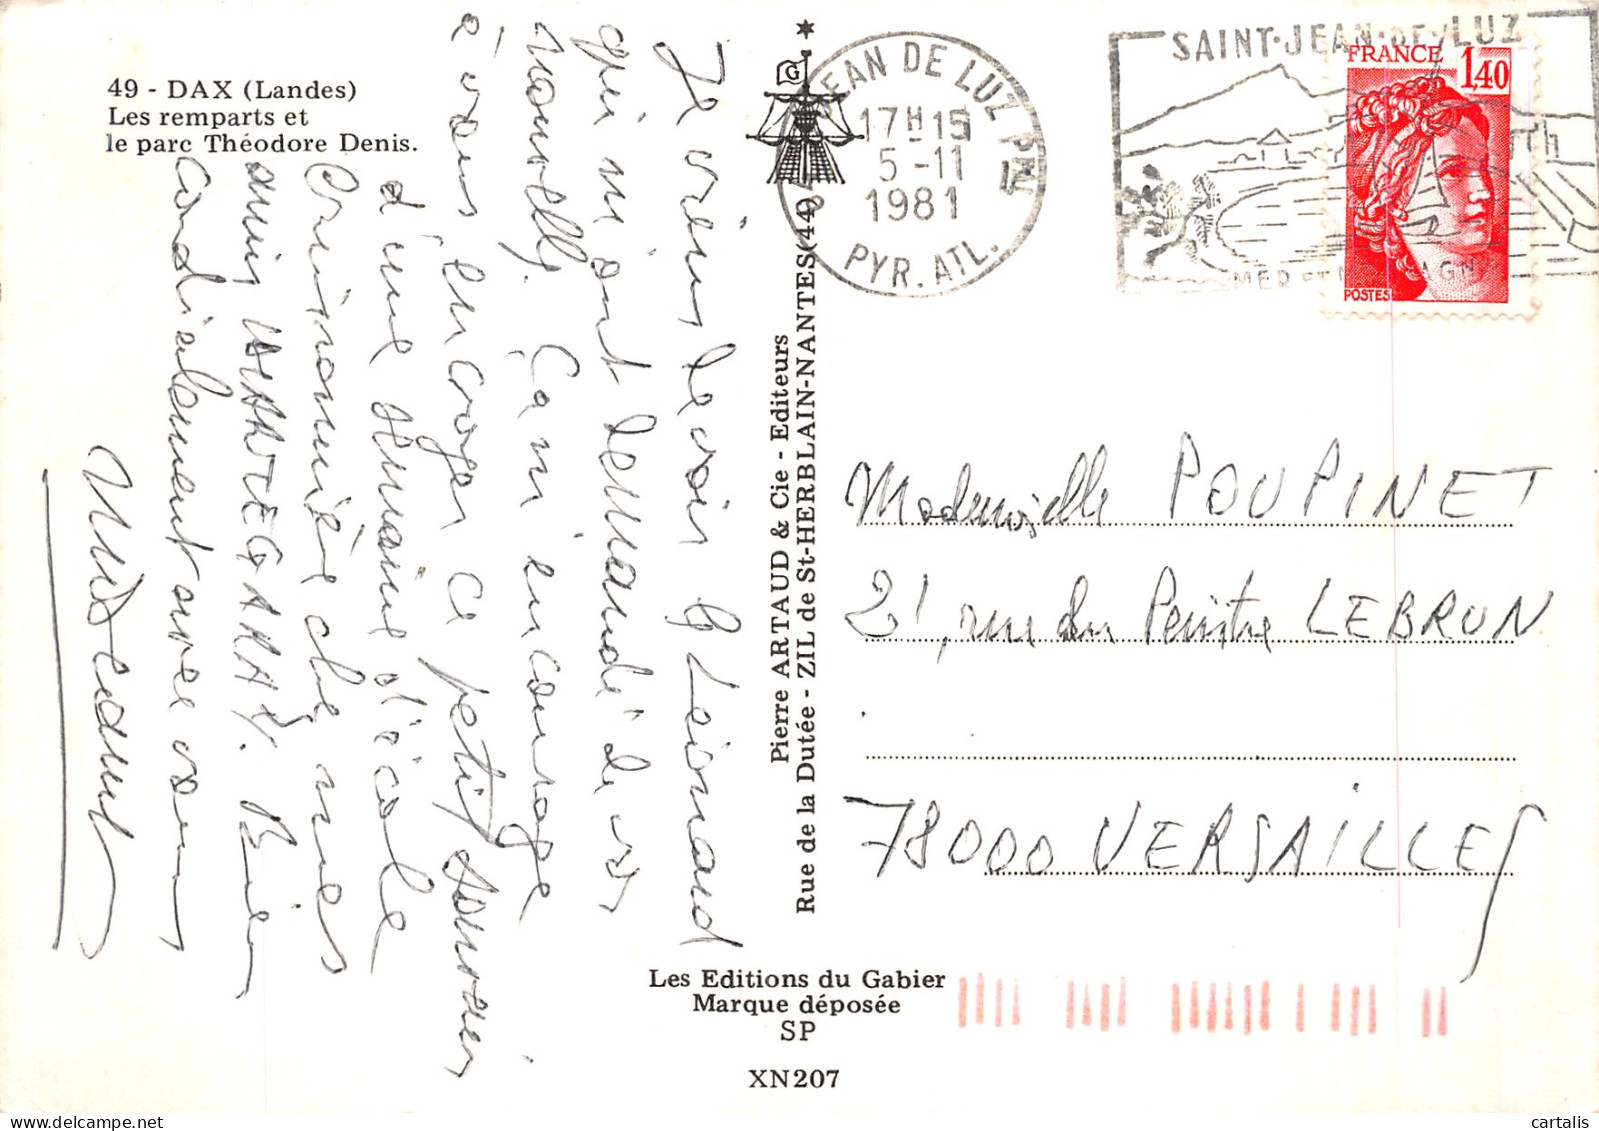 49 - DAX (Landes)
Les remparts et
le parc Théodore Denis.
Je viens de voir les Leonard
qui m'ont demandé de vos
nouvelles. Ça m'encourage
à vous envoyer ce petit souvenir
d'une semaine d'école
Cuisinonière chez mes
amis Bien
Cordialement avec vous
Pierre ARTAUD & Cie - Editeurs
Rue de la Dutée - ZIL de St-HERBLAIN-NANTES (44)
G
JEAN DE LUZ PPAL
17H15
5-11
1981
PYR. ATL.
SAINT-JEAN-DE-LUZ
MER ET MONTAGNE
FRANCE
1,40
POSTES
Mademoiselle POUPINET
21, rue du Peintre LEBRUN
78000 VERSAILLES
Les Editions du Gabier
Marque déposée
SP
XN207
cartalis.delcampe.net